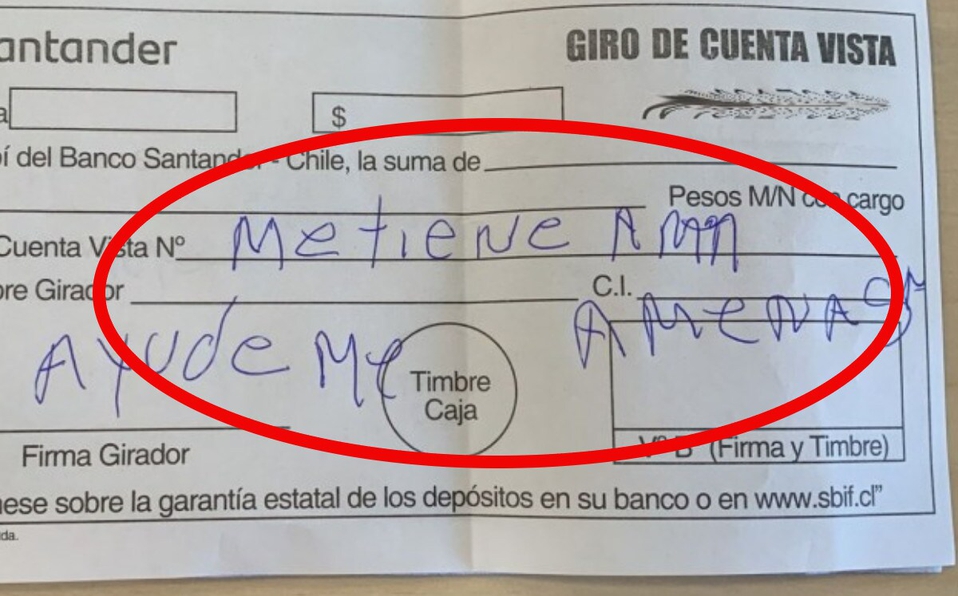 antander
GIRO DE CUENTA VISTA
a $
oí del Banco Santander - Chile, la suma de
Pesos M/N con cargo
Cuenta Vista Nº Me tiene
bre Girador C.I.
Ayudeme AMENAS
Timbre
Caja
Firma Girador Vº Bº (Firma y Timbre)
nese sobre la garantía estatal de los depósitos en su banco o en www.sbif.cl”
da.